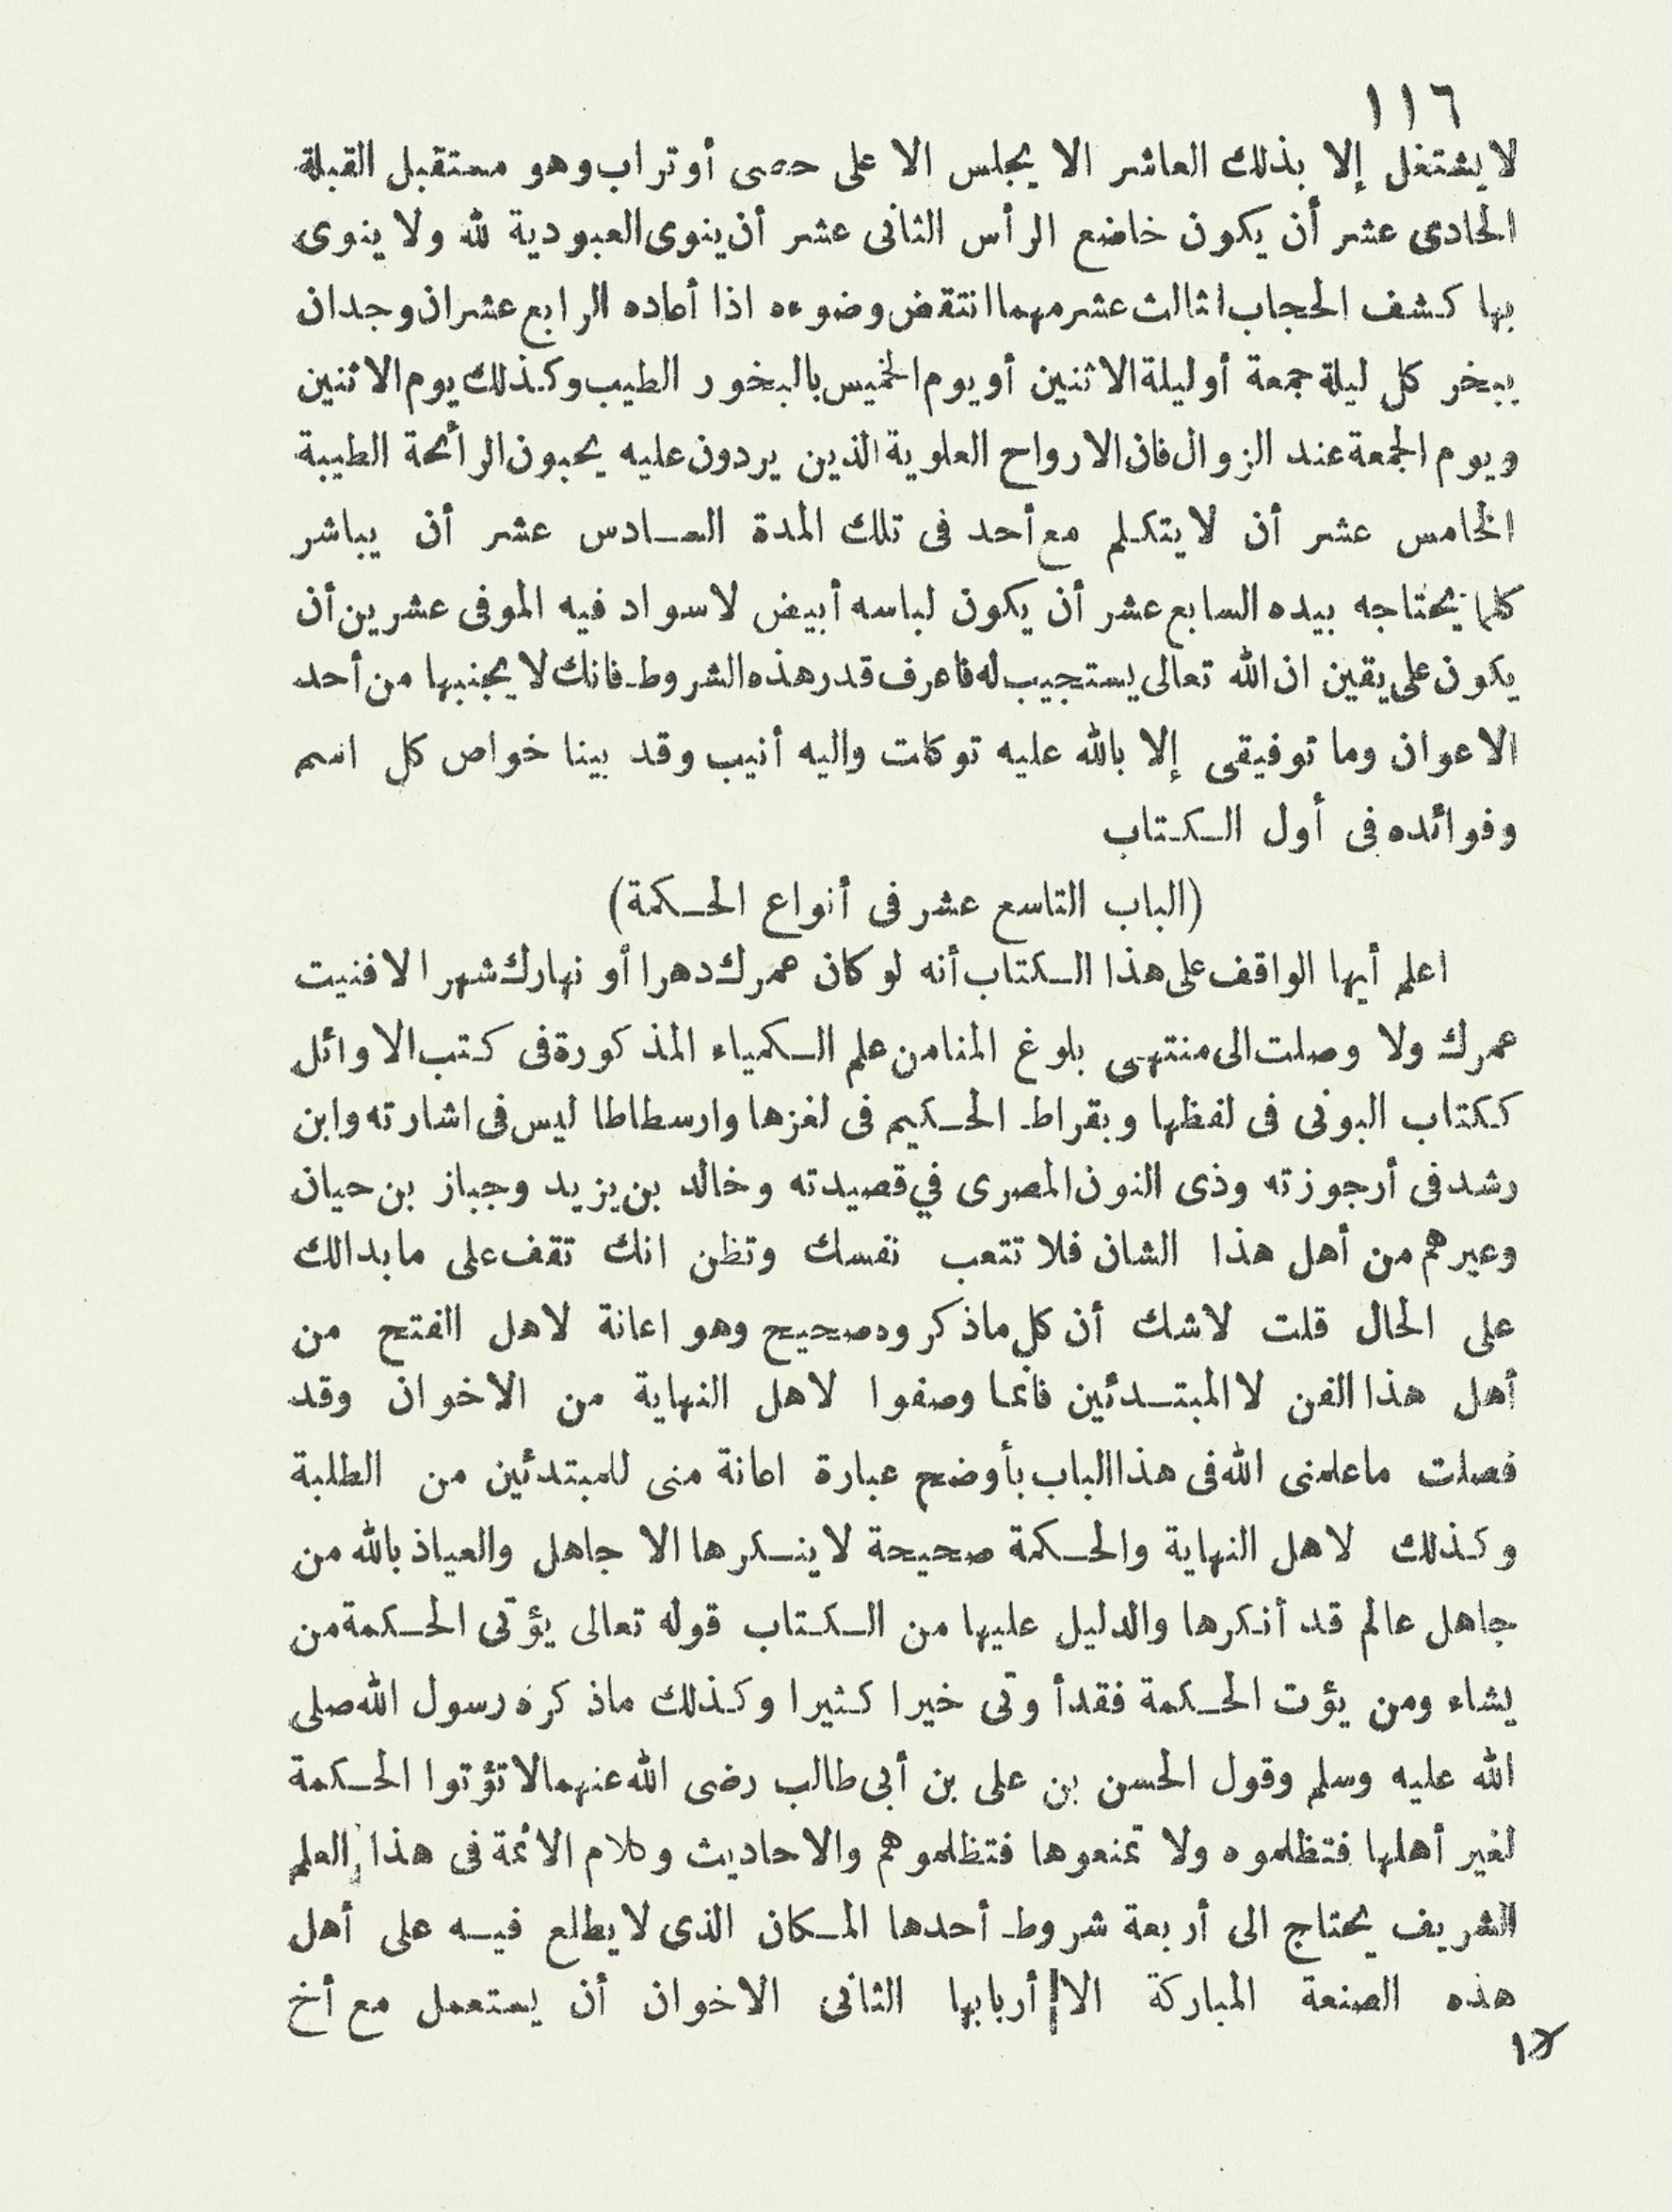 ١١٦
لا يشتغل إلا بذلك العاشر الا يجلس الا على حصى أو تراب وهو مستقبل القبلة
الحادى عشر أن يكون خاضع الرأس الثانى عشر أن ينوى العبودية لله ولا ينوى
بها كشف الحجاب اثالث عشر مهما انتقض وضوءه اذا أعاده الرابع عشر ان وجد ان
يبخر كل ليلة جمعة أو ليلة الاثنين أو يوم الخميس بالبخور الطيب وكذلك يوم الاثنين
ويوم الجمعة عند الزوال فان الارواح العلوية الذين يردون عليه يحبون الرائحة الطيبة
الخامس عشر أن لا يتكلم مع أحد فى تلك المدة السادس عشر أن يباشر
كلما يحتاجه بيده السابع عشر أن يكون لباسه أبيض لا سواد فيه الموفى عشرين أن
يكون على يقين ان الله تعالى يستجيب له فاعرف قدر هذه الشروط فانك لا يجنبها من أحد
الاعوان وما توفيقى إلا بالله عليه توكلت واليه أنيب وقد بينا خواص كل اسم
وفوائده فى أول الكتاب
(الباب التاسع عشر فى أنواع الحكمة)
اعلم أيها الواقف على هذا الكتاب أنه لو كان عمرك دهرا أو نهارك شهرا لافنيت
عمرك ولا وصلت الى منتهى بلوغ المنا من علم الكمياء المذكورة فى كتب الاوائل
ككتاب البونى فى لفظها وبقراط الحكيم فى لغزها وارسطاطا ليس فى اشارته وابن
رشد فى أرجوزته وذى النون المصرى في قصيدته وخالد بن يزيد وجباز بن حيان
وعيرهم من أهل هذا الشان فلا تتعب نفسك وتظن انك تقف على ما بدالك
على الحال قلت لاشك أن كل ماذكروه صحيح وهو اعانة لاهل الفتح من
أهل هذا الفن لا المبتدئين فانما وصفوا لاهل النهاية من الاخوان وقد
فصلت ما علمنى الله فى هذا الباب بأوضح عبارة اعانة منى للمبتدئين من الطلبة
وكذلك لاهل النهاية والحكمة صحيحة لا ينكرها الا جاهل والعياذ بالله من
جاهل عالم قد أنكرها والدليل عليها من الكتاب قوله تعالى يؤتى الحكمة من
يشاء ومن يؤت الحكمة فقد أوتى خيرا كثيرا وكذلك ماذكره رسول الله صلى
الله عليه وسلم وقول الحسن بن على بن أبى طالب رضى الله عنهما لا تؤتوا الحكمة
لغير أهلها فتظلموه ولا تمنعوها فتظلموهم والاحاديث وكلام الائمة فى هذا العلم
الشريف يحتاج الى أربعة شروط أحدها المكان الذى لا يطلع فيه على أهل
هذه الصنعة المباركة الا أربابها الثانى الاخوان أن يستعمل مع أخ